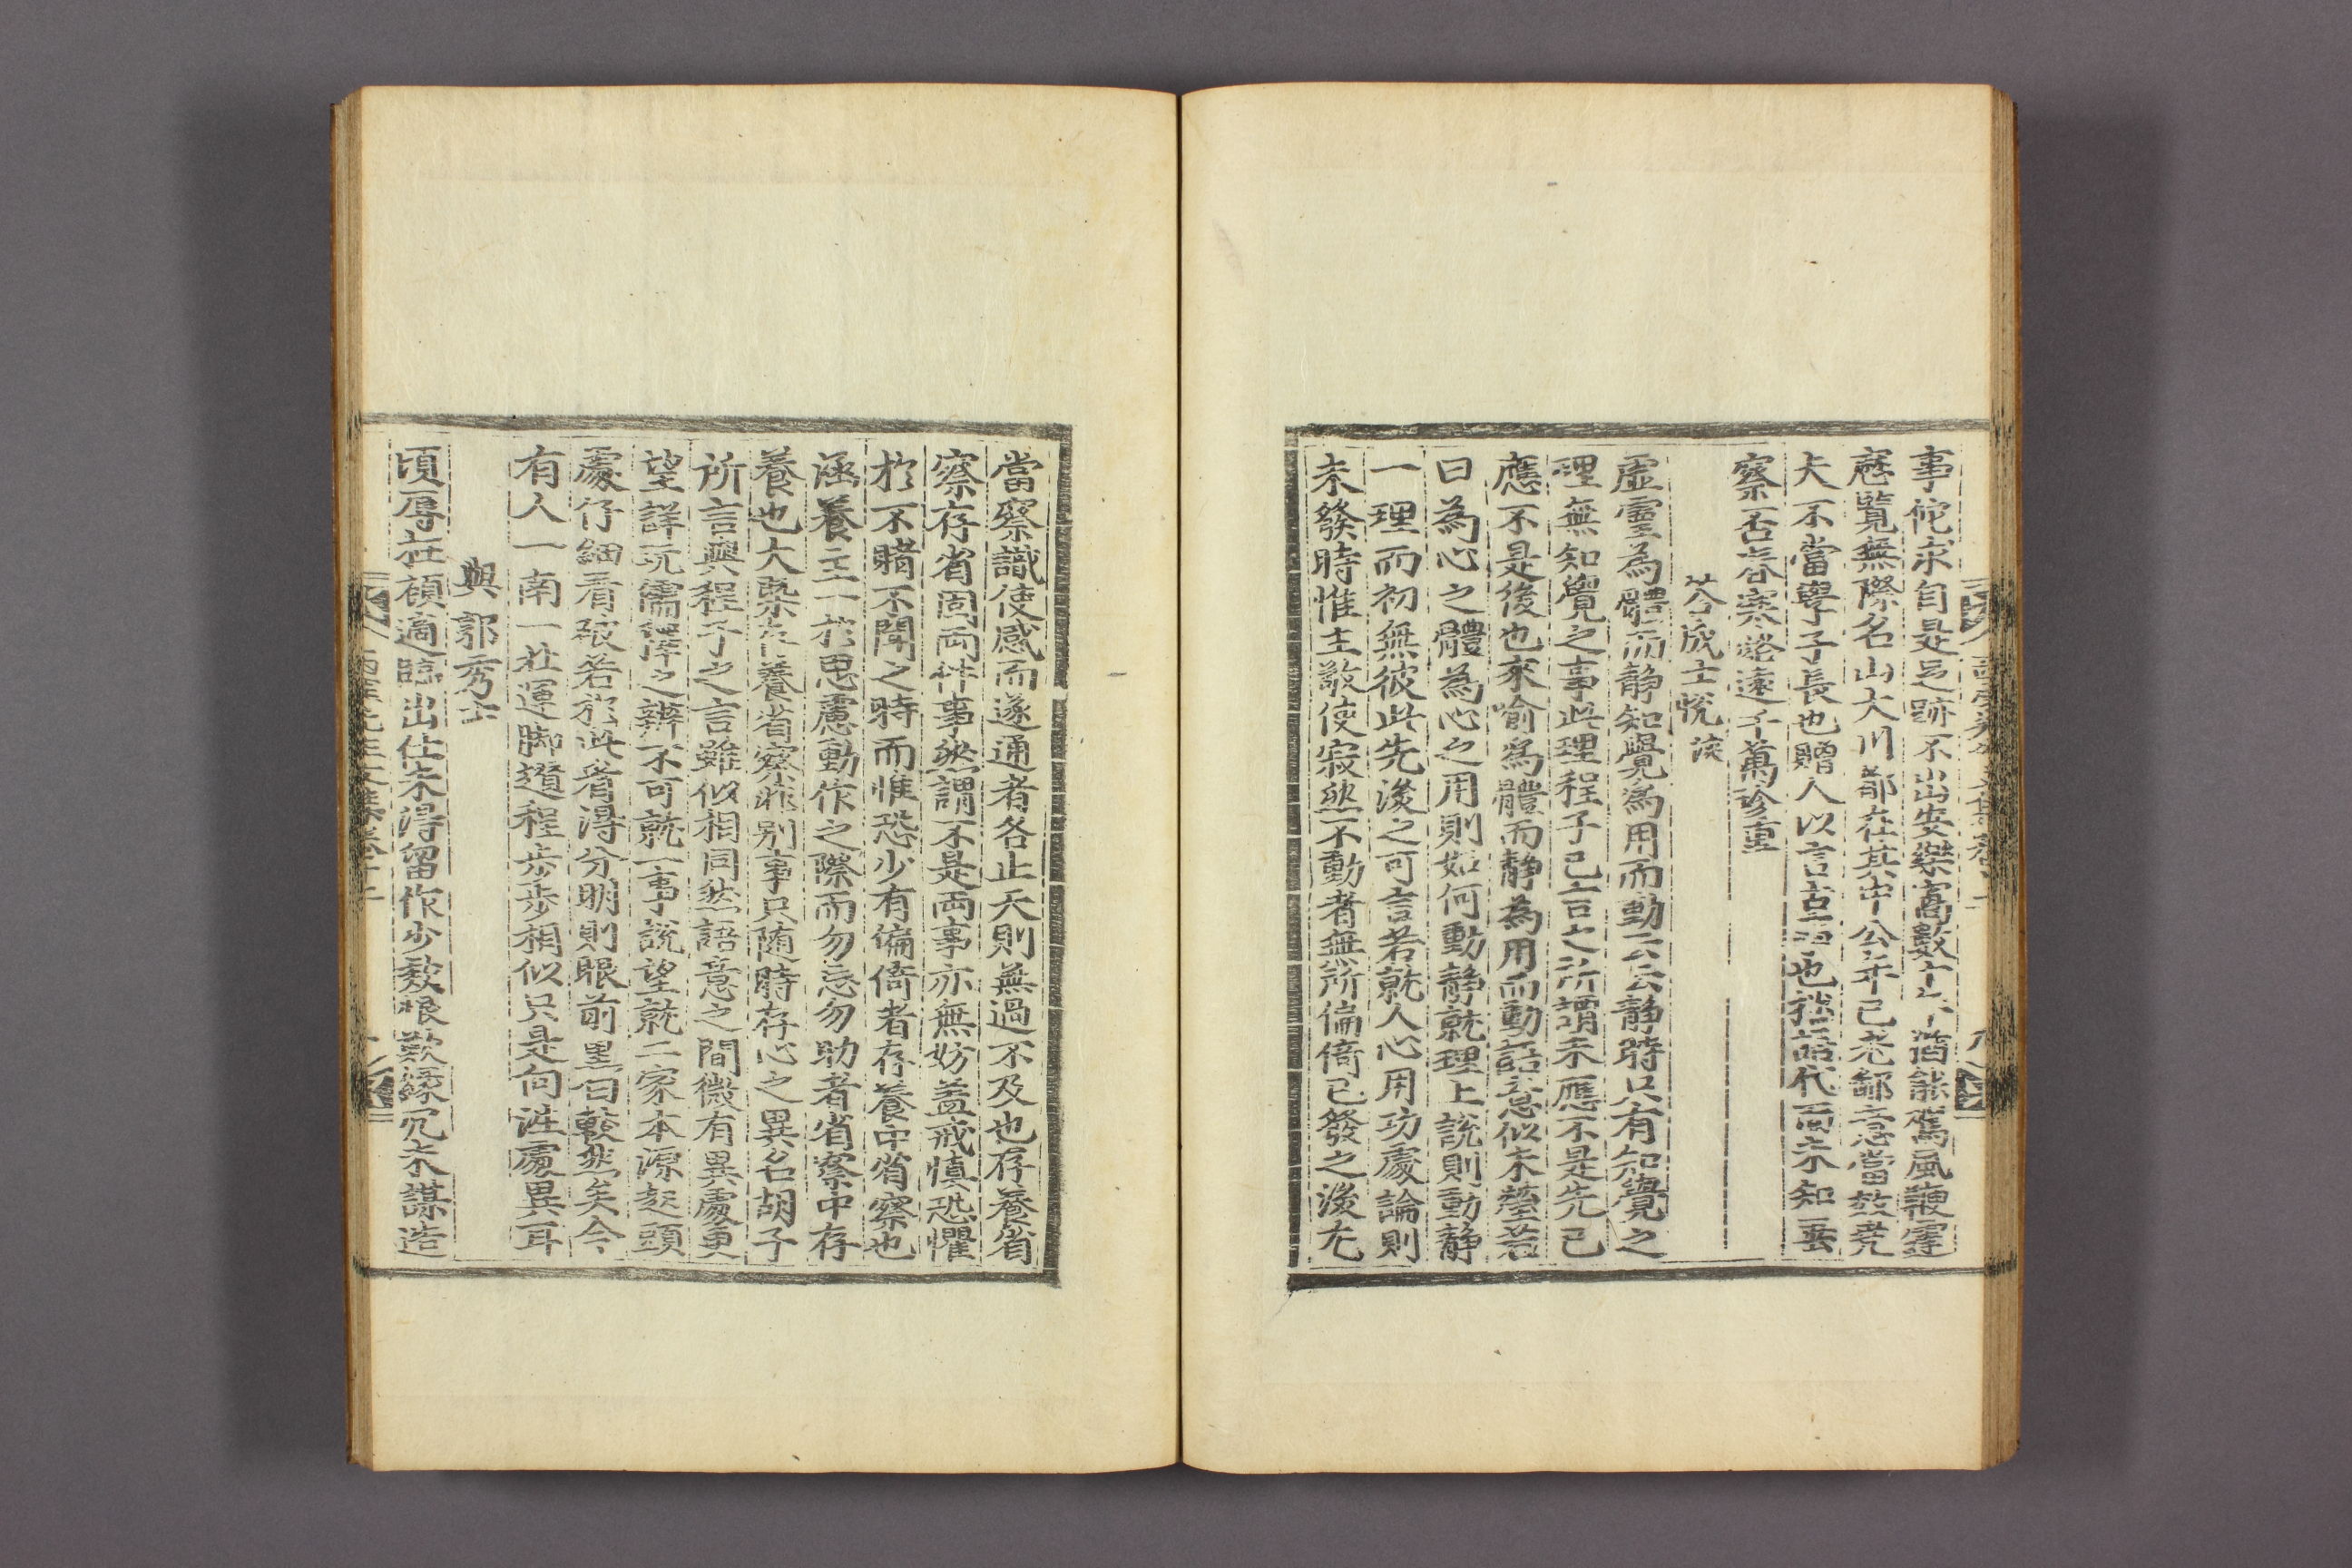 事佗求自是足跡不出安樂窩數十年猶能駕風鞭霆
歷覽無際名山大川都在其中公年已老鄙意當鼓荒
夫不當粤子子長也贈人以言古也措語代面未知垂
察否春寒遼遠千萬珍重
答成士悅
虛靈爲體而靜知覺爲用而動云云靜時只有知覺之
理無知覺之事此理程子已言之所謂未應不是先已
應不是後也來喻爲體而靜爲用而動語意似未瑩若
曰為心之體為心之用則如何動靜就理上說則動靜
一理而初無彼此先後之可言若就人心用功處論則
未發時惟主敬使寂然不動者無所偏倚已發之後尤
當察識使感而遂通者各止天則無過不及也存養省
察存省固兩件事然謂不是兩事亦無妨蓋戒愼恐懼
於不睹不聞之時而惟恐少有偏倚者存養中省察也
涵養主一於思慮動作之際而勿忘勿助者省察中存
養也大槩存養省察非别事只随時存心之異名胡子
所言與程子之言雖似相同然語意之間微有異處更
望詳玩儒釋之辨不可就一事說望就二家本源起頭
處仔細看破若於此看得分明則眼前黑白較然矣今
有人一南一北運脚趲程步步相似只是向涯處異耳
與郭秀士
頃辱在顧適臨出仕未得留作少款恨歎緣冗未謀造